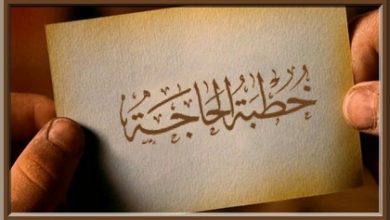 خُطْبَةُ الْحَاجَةِ